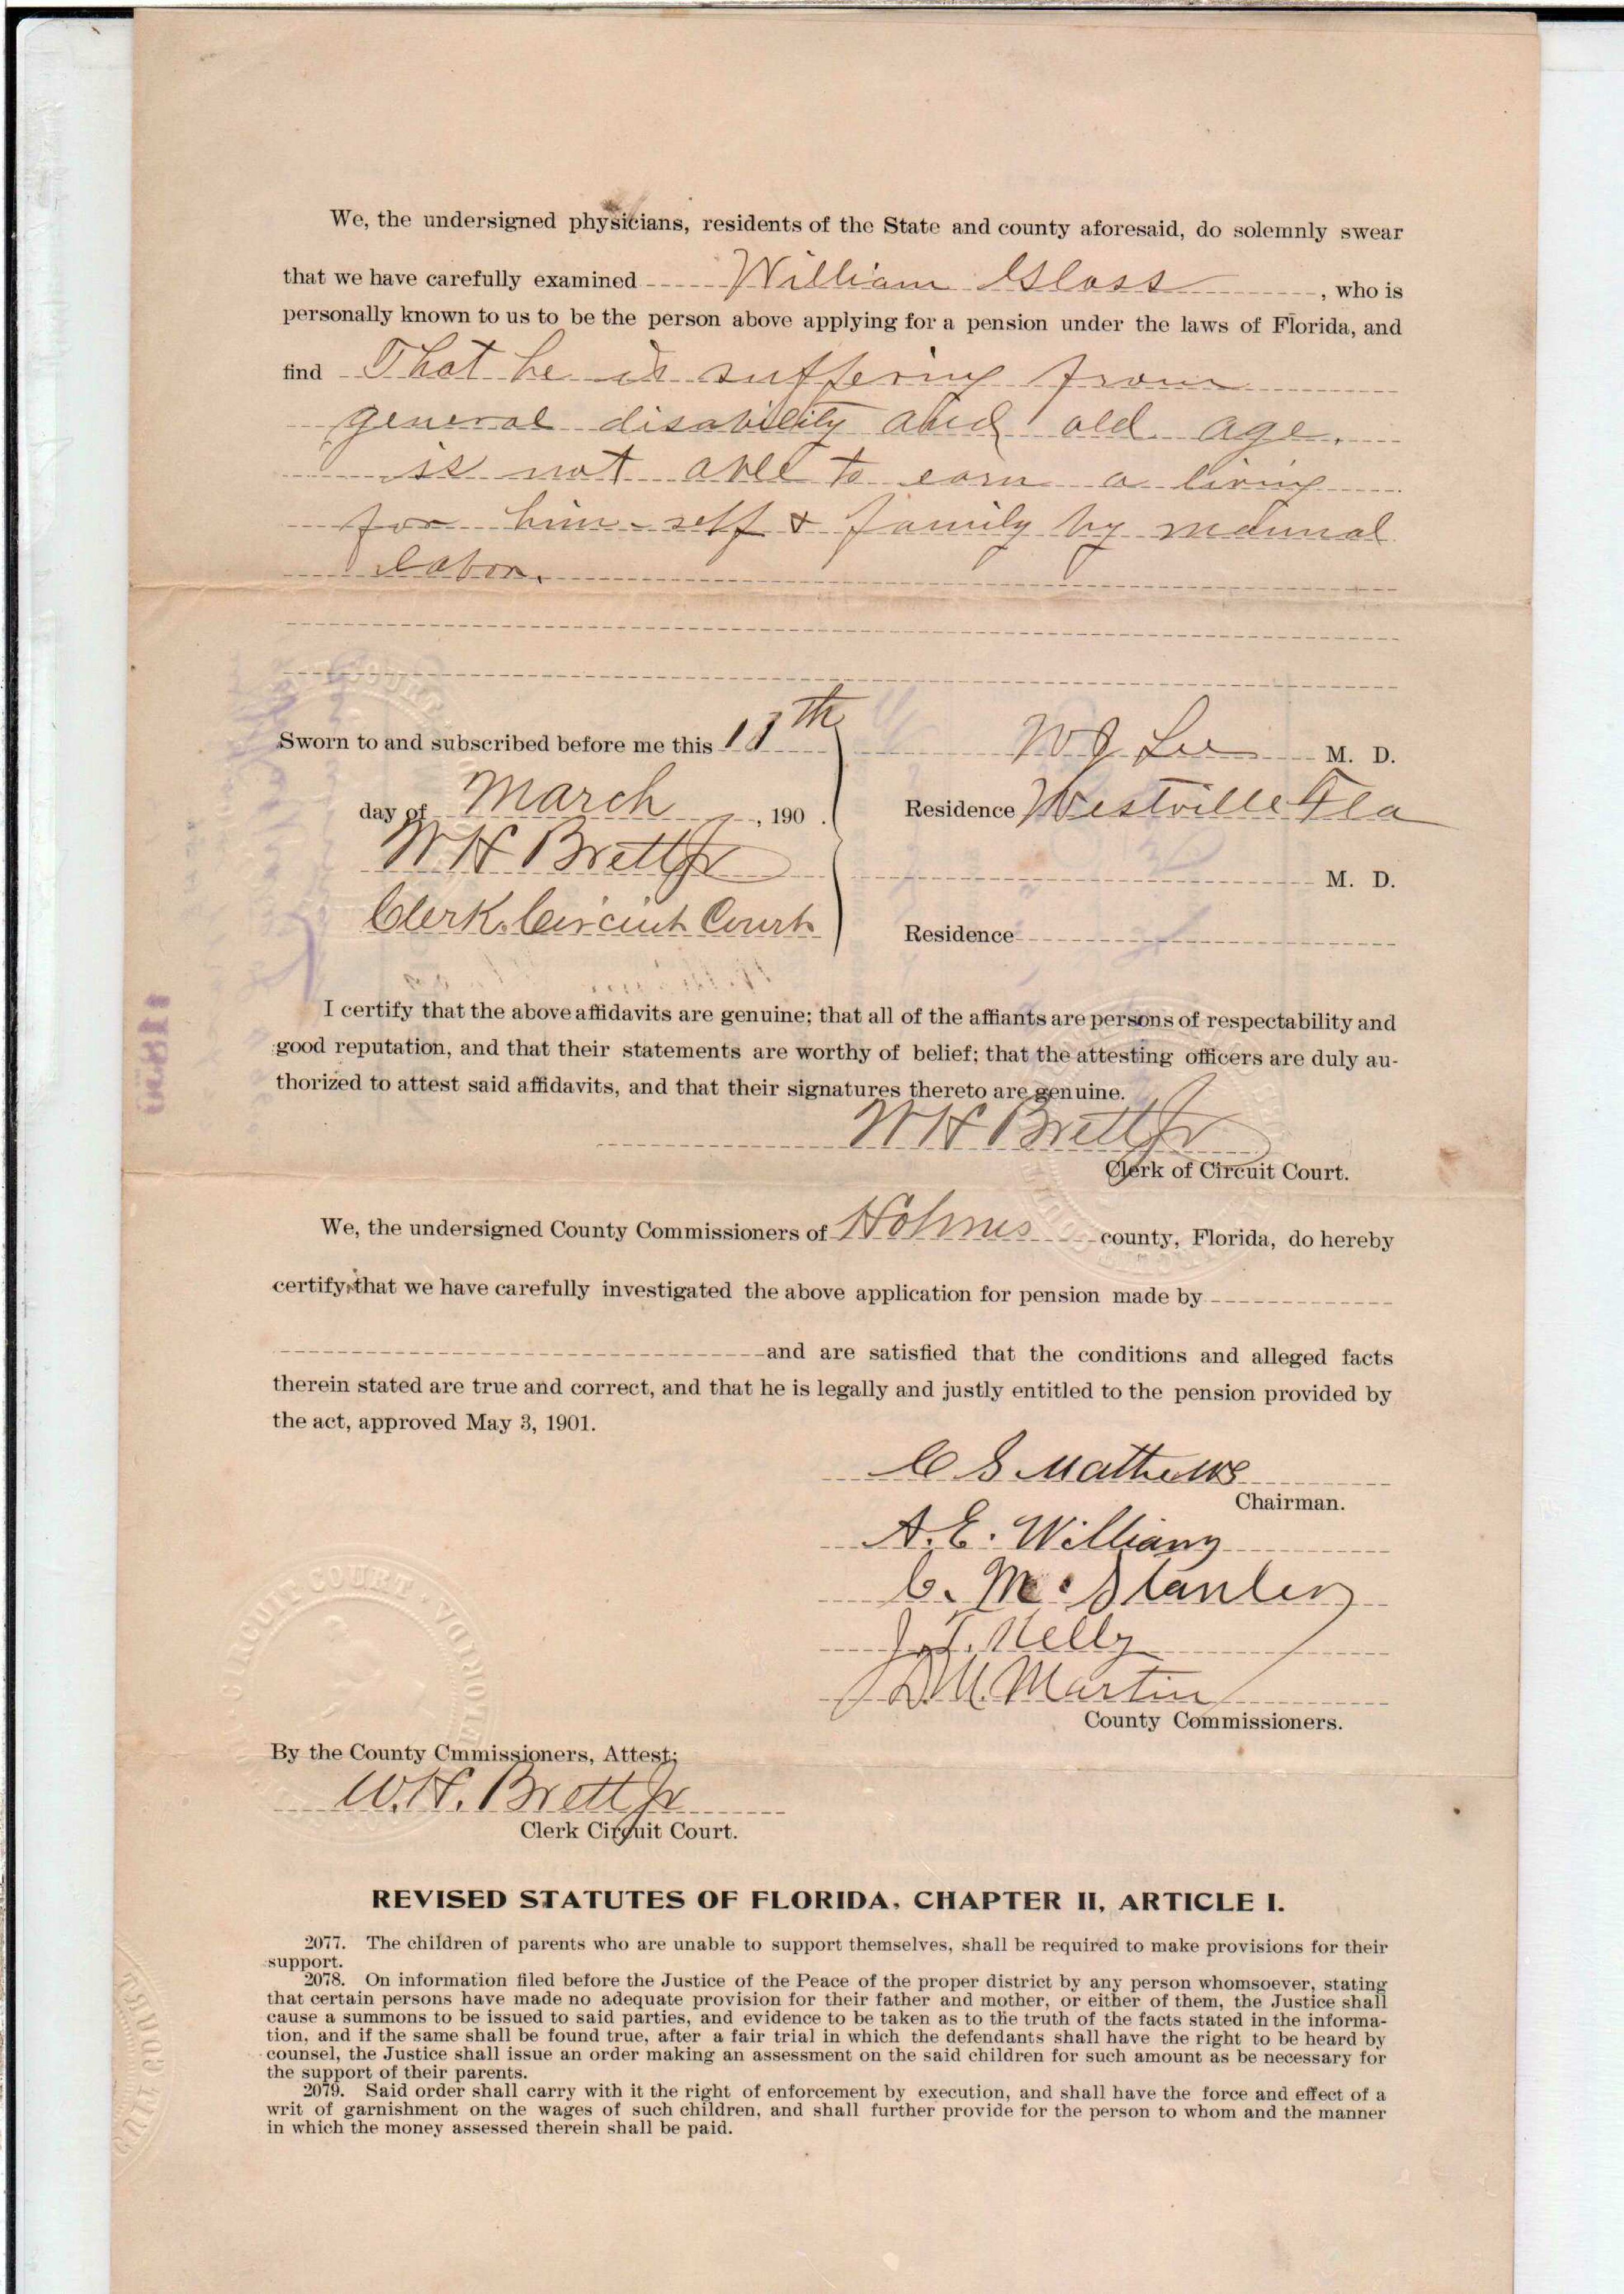 We, the undersigned physicians, residents of the State and county aforesaid, do solemnly swear
that we have carefully examined William Glass, who is
personally known to us to be the person above applying for a pension under the laws of Florida, and
find That he is suffering from
general disability and old age.
is not able to earn a living
for him-self & family by manual
labor.
Sworn to and subscribed before me this 11th
day of March, 190 .
W H Brett Jr
Clerk Circuit Court
W J Lee M. D.
Residence Westville Fla
M. D.
Residence
I certify that the above affidavits are genuine; that all of the affiants are persons of respectability and
good reputation, and that their statements are worthy of belief; that the attesting officers are duly au-
thorized to attest said affidavits, and that their signatures thereto are genuine.
W H Brett Jr
Clerk of Circuit Court.
We, the undersigned County Commissioners of Holmes county, Florida, do hereby
certify that we have carefully investigated the above application for pension made by
and are satisfied that the conditions and alleged facts
therein stated are true and correct, and that he is legally and justly entitled to the pension provided by
the act, approved May 3, 1901.
C S Mathews
Chairman.
A. E. Williams
C. M. Stanley
J. T. Kelly
D. M. Martin
County Commissioners.
By the County Cmmissioners, Attest;
W. H. Brett Jr
Clerk Circuit Court.
REVISED STATUTES OF FLORIDA, CHAPTER II, ARTICLE I.
2077. The children of parents who are unable to support themselves, shall be required to make provisions for their
support.
2078. On information filed before the Justice of the Peace of the proper district by any person whomsoever, stating
that certain persons have made no adequate provision for their father and mother, or either of them, the Justice shall
cause a summons to be issued to said parties, and evidence to be taken as to the truth of the facts stated in the informa-
tion, and if the same shall be found true, after a fair trial in which the defendants shall have the right to be heard by
counsel, the Justice shall issue an order making an assessment on the said children for such amount as be necessary for
the support of their parents.
2079. Said order shall carry with it the right of enforcement by execution, and shall have the force and effect of a
writ of garnishment on the wages of such children, and shall further provide for the person to whom and the manner
in which the money assessed therein shall be paid.